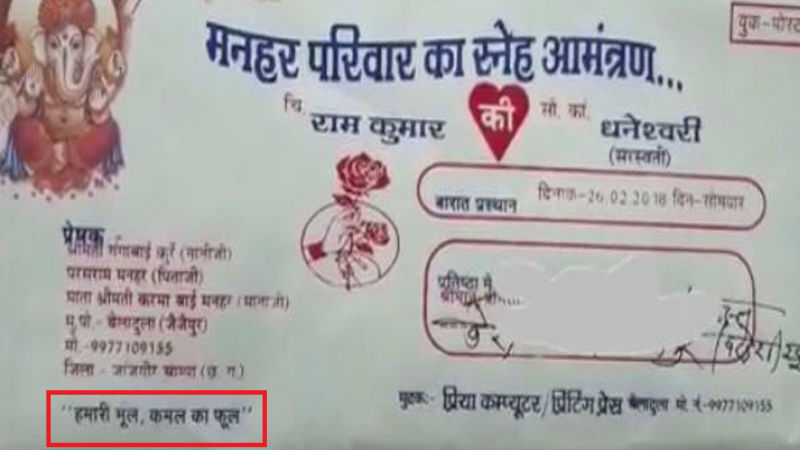 बुक-पोस्ट
मनहर परिवार का स्नेह आमंत्रण...
चि. राम कुमार की सौ. कां. धनेश्वरी
(सरस्वती)
बारात प्रस्थान दिनांक-26.02.2018 दिन-सोमवार
प्रेषक
श्रीमती गंगाबाई कुर्रे (नानीजी)
परसराम मनहर (पिताजी)
माता श्रीमती करमा बाई मनहर (माताजी)
मु.पो.- बेलादुला (जैजैपुर)
मो.-9977109155
जिला - जांजगीर चाम्पा (छ.ग.)
प्रतिष्ठा में
श्रीमान
"हमारी भूल, कमल का फूल"
मुद्रक:- प्रिया कम्प्यूटर/प्रिंटिंग प्रेस बेलादुला मो.नं.-9977109155